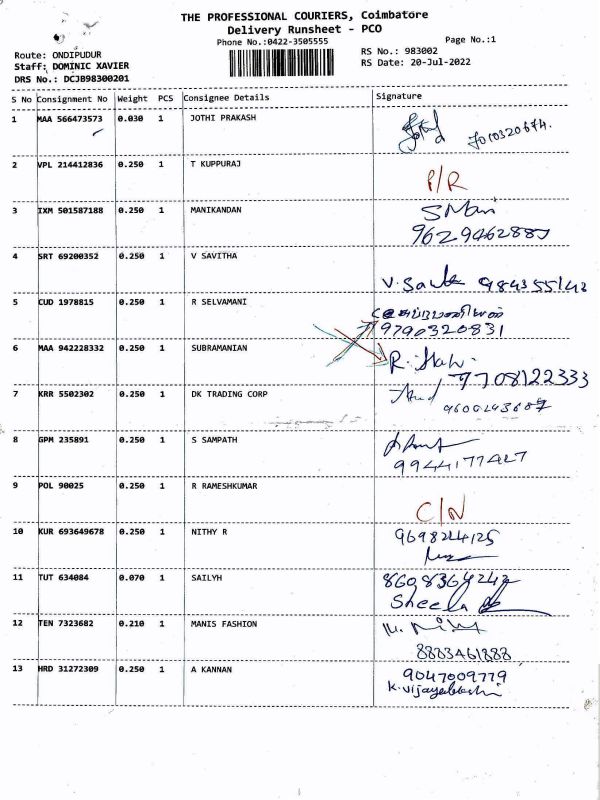 THE PROFESSIONAL COURIERS, Coimbatore
Delivery Runsheet - PCO
Phone No.:0422-3505555
Page No.:1
Route: ONDIPUDUR
RS No.: 983002
Staff: DOMINIC XAVIER
RS Date: 20-Jul-2022
DRS No.: DCJB98300201
S No Consignment No Weight PCS Consignee Details Signature
1 MAA 566473573 0.030 1 JOTHI PRAKASH
2 VPL 214412836 0.250 1 T KUPPURAJ
P/R
3 IXM 501587188 0.250 1 MANIKANDAN
S Mani
4 SRT 69200352 0.250 1 V SAVITHA
5 CUD 1978815 0.250 1 R SELVAMANI
9790320831
6 MAA 942228332 0.250 1 SUBRAMANIAN
9708122333
7 KRR 5502302 0.250 1 DK TRADING CORP
8 GPM 235891 0.250 1 S SAMPATH
9944177427
9 POL 90025 0.250 1 R RAMESHKUMAR
C/N
10 KUR 693649678 0.250 1 NITHY R
9698224125
11 TUT 634084 0.070 1 SAILYH
8608364242
Sheela
12 TEN 7323682 0.210 1 MANIS FASHION
8883461888
13 HRD 31272309 0.250 1 A KANNAN
9047009779